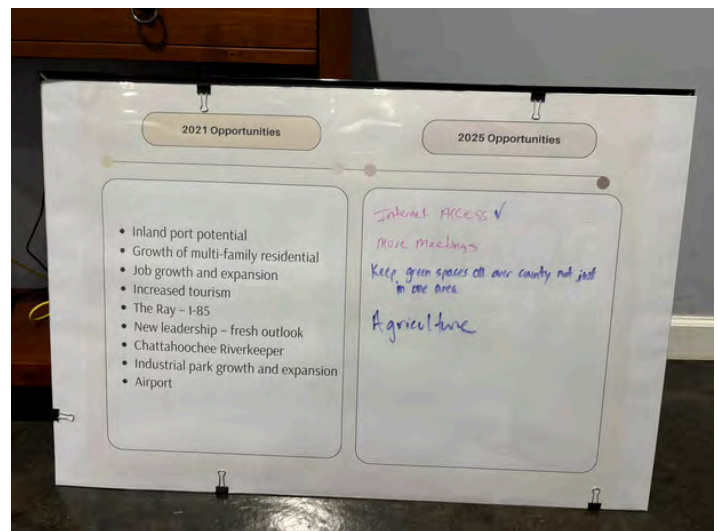 2021 Opportunities
• Inland port potential
• Growth of multi-family residential
• Job growth and expansion
• Increased tourism
• The Ray – I-85
• New leadership – fresh outlook
• Chattahoochee Riverkeeper
• Industrial park growth and expansion
• Airport
2025 Opportunities
Internet Access ✓
More Meetings
Keep green spaces all over county not just
in one area
Agriculture